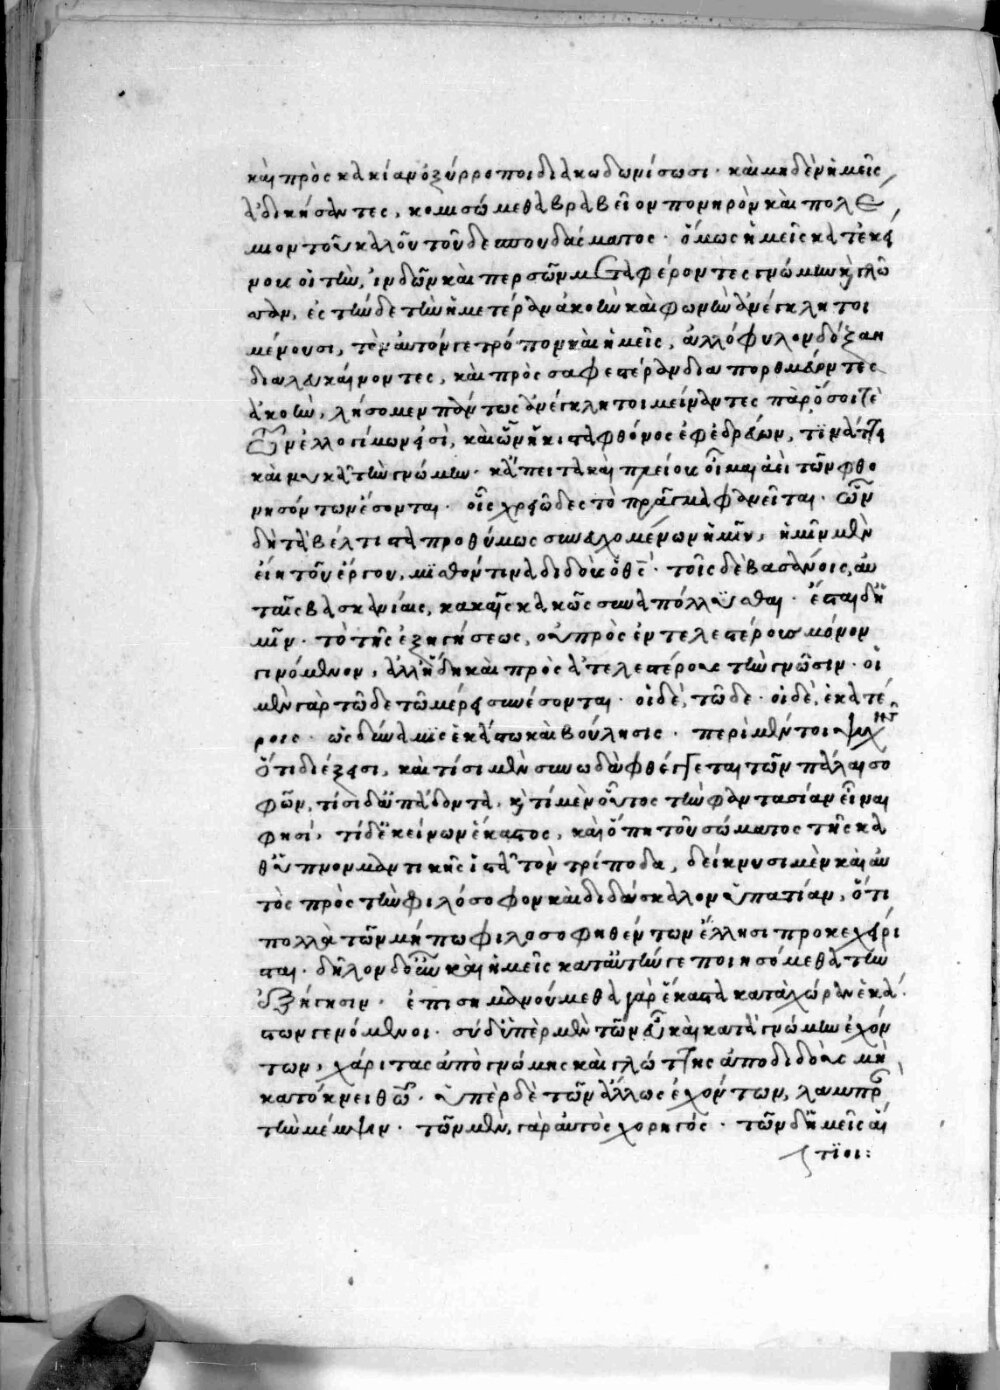 καὶ πρὸς κακίαν ὀξύρροποι διακωδωνίσωσι· καὶ μηδὲν ἡμεῖς
ἀδικήσαντες, κομισώμεθα βραβεῖον πονηρὸν καὶ πολέ
μιον τοῦ καλοῦ τοῦδε σπουδάσματος· ὅμως ἡμεῖς κατ' ἐκεί
νους οἳ τὴν ἰνδῶν καὶ περσῶν μεταφέροντες γνώμην καὶ γλῶ
σσαν, ἐς τήνδε τὴν ἡμετέραν ἀκοὴν καὶ φωνὴν ἀνέγκλητοι
μένουσι, τὸν αὐτόν γε τρόπον καὶ ἡμεῖς, ἀλλόφυλον δόξαν
διαλευκαίνοντες, καὶ πρὸς σαφεστέραν διαπορθμεύοντες
ἀκοὴν, λήσομεν πάντως ἀνέγκλητοι μείναντες παρ' ὅσοις γε
ἐλλόγιμων εἰσὶ, καὶ ὧν ἥκιστα φθόνος ἐφεδρεύων,
καὶ τὴν γνώμην· κἄπειτα καὶ πλείους οἶμαι ἀεὶ τῶν φθο
νησόντων ἔσονται· οἷς χρεῶδες τὸ πρᾶγμα φανεῖται· ὧν
δὴ τὰ βέλτιστα προθύμως συνευχομένων ἡμῖν, ἡμῖν μὲν
εἴη τοῦ ἔργου, μισθόν τινα διδοὺς ὁ θεός· τοῖς δὲ βασάνοις, αὐ
ταῖς βασκανίαις, κακαῖς κακῶς συναπόλλυσθαι· ἔσται δ' ἡ
μῖν· τὸ τῆς ἐξηγήσεως, οὐ πρὸς ἐντελεστέρους μόνον
γινόμενον, ἀλλ' ἤδη καὶ πρὸς ἀτελεστέρους τὴν γνῶσιν· οἱ
μὲν γὰρ τῶδε τῶ μέρει συνέσονται· οἱ δὲ, τῶδε· οἱ δὲ, ἑκατέ
ροις· ὡς δύναμις ἑκάστω καὶ βούλησις· περὶ μέντοι ψυχῆς
ὅτι διέξεισι, καὶ τίσι μὲν συνωδὰ φθέγγεται τῶν πάλαι σο
φῶν, τίσι δ' ἀπάδοντα, καὶ τί μὲν οὗτος τὴν φαντασίαν εἶναι
φησὶ, τί δ' ἐκείνων ἕκαστος, καὶ ὅπη τοῦ σώματος τῆς κα
θ' ὕπνον μαντικῆς ἱστᾶ τὸν τρίποδα, δείκνυσι μὲν καὶ αὐ
τὸς πρὸς τὴν φιλόσοφον καὶ διδάσκαλον ὑπατίαν, ὅτι
πολλὰ τῶν μήπω φιλοσοφηθέντων ἕλλησι προκεχείρι
σται· δῆλον δ' οὖν καὶ ἡμεῖς κατ' αὐτήν γε ποιησόμεθα τὴν
ἐξήγησιν· ἐπισημανούμεθα γὰρ ἕκαστα κατὰ χώραν ἑκά
στων γενόμενοι· σὺ δ' ὑπὲρ μὲν τῶν εὖ καὶ κατὰ γνώμην ἐχόν
των, χάριτας ἀπὸ γνώμης καὶ γλώττης ἀποδιδόναι μὴ
κατοκνείσθω· ὑπὲρ δὲ τῶν ἄλλως ἐχόντων, λαμπρὰν
τὴν μέμψιν· τῶν μὲν, γὰρ αὐτὸς χορηγός· τῶν δ' ἡμεῖς αἴ
τιοι: